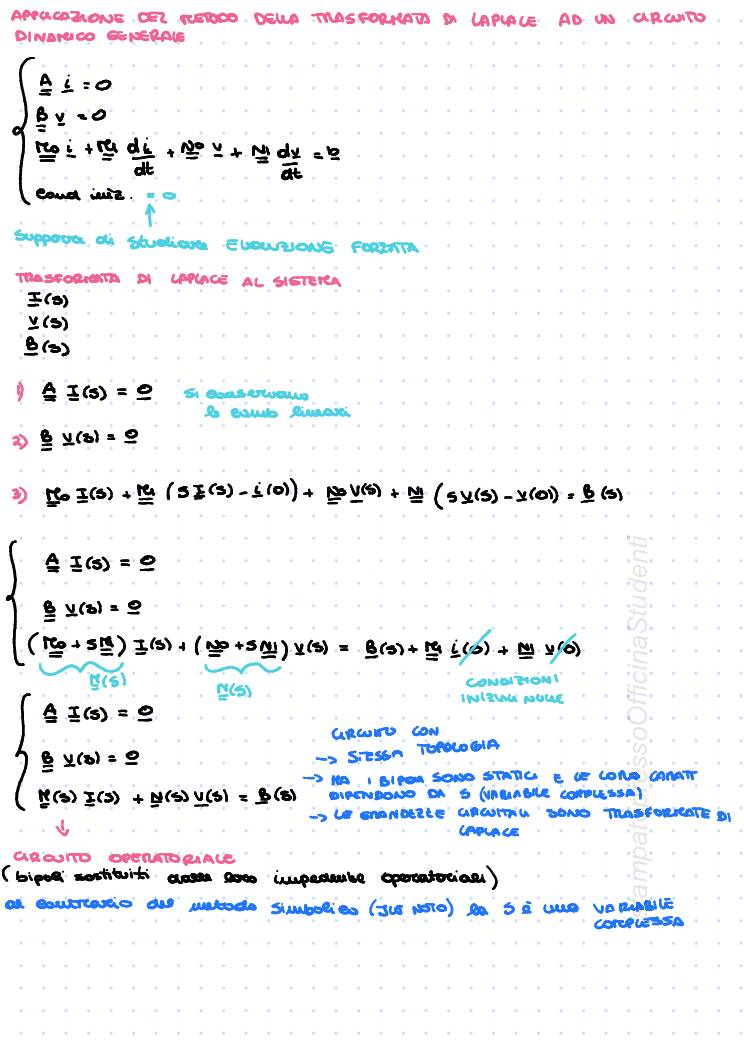 APPLICAZIONE DEL METODO DELLA TRASFORMATA DI LAPLACE AD UN CIRCUITO
DINAMICO GENERALE
A i = 0
B v = 0
M0 i + M1 di/dt + N0 v + N1 dv/dt = b
cond iniz. = 0
Suppone di studiare EVOLUZIONE FORZATA
TRASFORMATA DI LAPLACE AL SISTEMA
I(s)
V(s)
B(s)
1) A I(s) = 0 si conservano
le comb lineari
2) B V(s) = 0
3) M0 I(s) + M1 (s I(s) - i(0)) + N0 V(s) + N1 (s V(s) - v(0)) = B(s)
A I(s) = 0
B V(s) = 0
(M0 + sM1) I(s) + (N0 + sN1) V(s) = B(s) + M1 i(0) + N1 v(0)
M(s) N(s) CONDIZIONI
INIZIALI NULLE
A I(s) = 0
B V(s) = 0
M(s) I(s) + N(s) V(s) = B(s)
CIRCUITO CON
-> STESSA TOPOLOGIA
-> MA I BIPOLI SONO STATICI E LE LORO CARATT
DIPENDONO DA S (VARIABILE COMPLESSA)
-> LE GRANDEZZE CIRCUITALI SONO TRASFORMATE DI
LAPLACE
↓
CIRCUITO OPERATORIALE
(bipoli sostituiti dalle loro impedenze operatoriali)
al contrario del metodo simbolico (jω NOTO) la S è una VARIABILE
COMPLESSA
StampatoPressoOfficinaStudenti